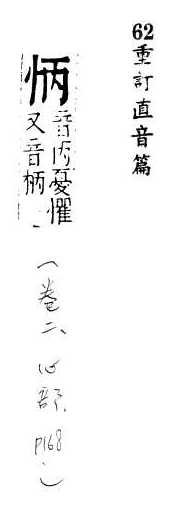 62重訂直音篇
怲
音丙憂懼
又音柄
（卷二、心部、P168）